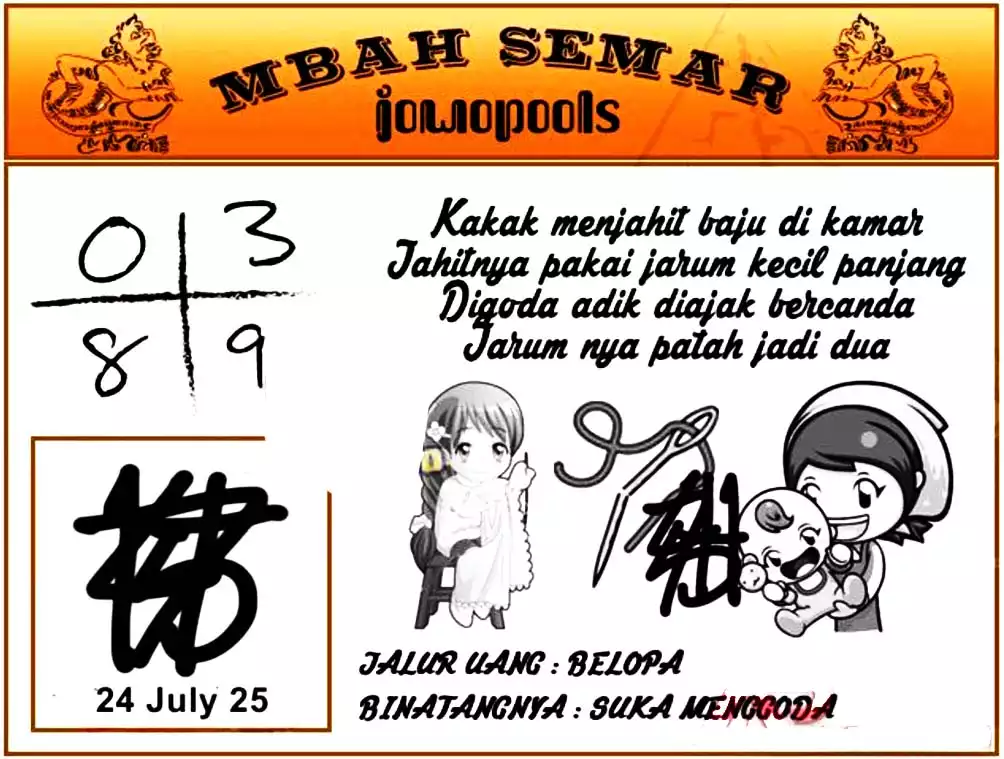 MBAH SEMAR
jowopools
0 3
8 9
Kakak menjahit baju di kamar
Jahitnya pakai jarum kecil panjang
Digoda adik diajak bercanda
Jarum nya patah jadi dua
24 July 25
JALUR UANG : BELOPA
BINATANGNYA : SUKA MENGGODA